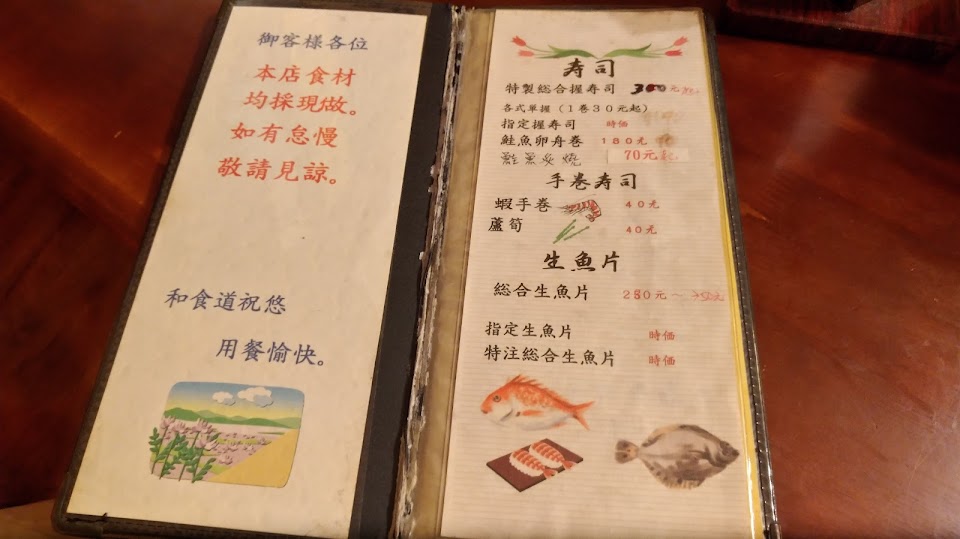 御客樣各位
本店食材
均採現做。
如有怠慢
敬請見諒。
和食道祝悠
用餐愉快。
寿司
特製総合握寿司 300元起
各式單握（1巻30元起）
指定握寿司 時価
鮭魚卵舟巻 180元
鮭魚炙燒 70元起
手巻寿司
蝦手巻 40元
蘆筍 40元
生魚片
総合生魚片 280元～
指定生魚片 時価
特注総合生魚片 時価